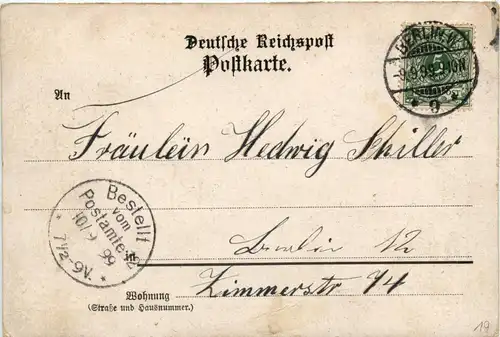 Deutsche Reichspost
Postkarte.
BERLIN W.
-9.9.99.
* 9 *
An
Fräulein Hedwig Schiller
Bestellt
vom
Postamte
10/9 99
7½-9V.
in Berlin 12
Zimmerstr 94
Wohnung
(Straße und Hausnummer.)
19